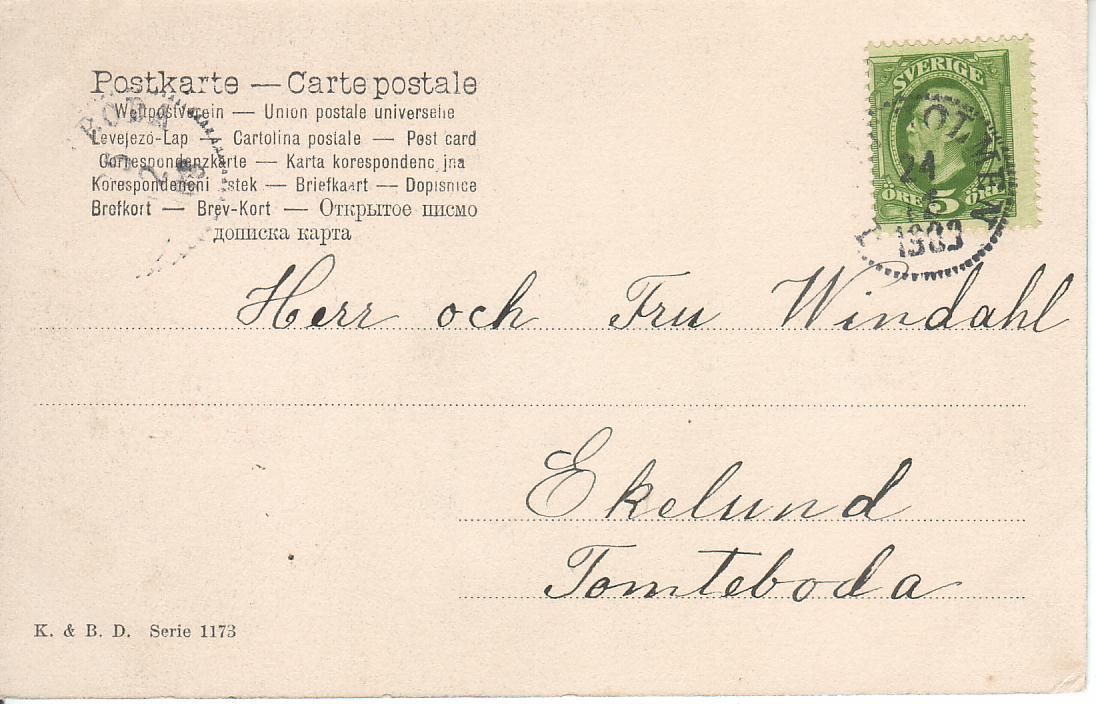 Postkarte — Carte postale
Weltpostverein — Union postale universelle
Levelező-Lap — Cartolina postale — Post card
Correspondenzkarte — Karta korespondencyjna
Korespondenčni listek — Briefkaart — Dopisnice
Brefkort — Brev-Kort — Открытое письмо
дописка карта
SVERIGE
ÖRE 5 ÖRE
24
1903
Herr och Fru Windahl
Ekelund
Tomteboda
K. & B. D. Serie 1173